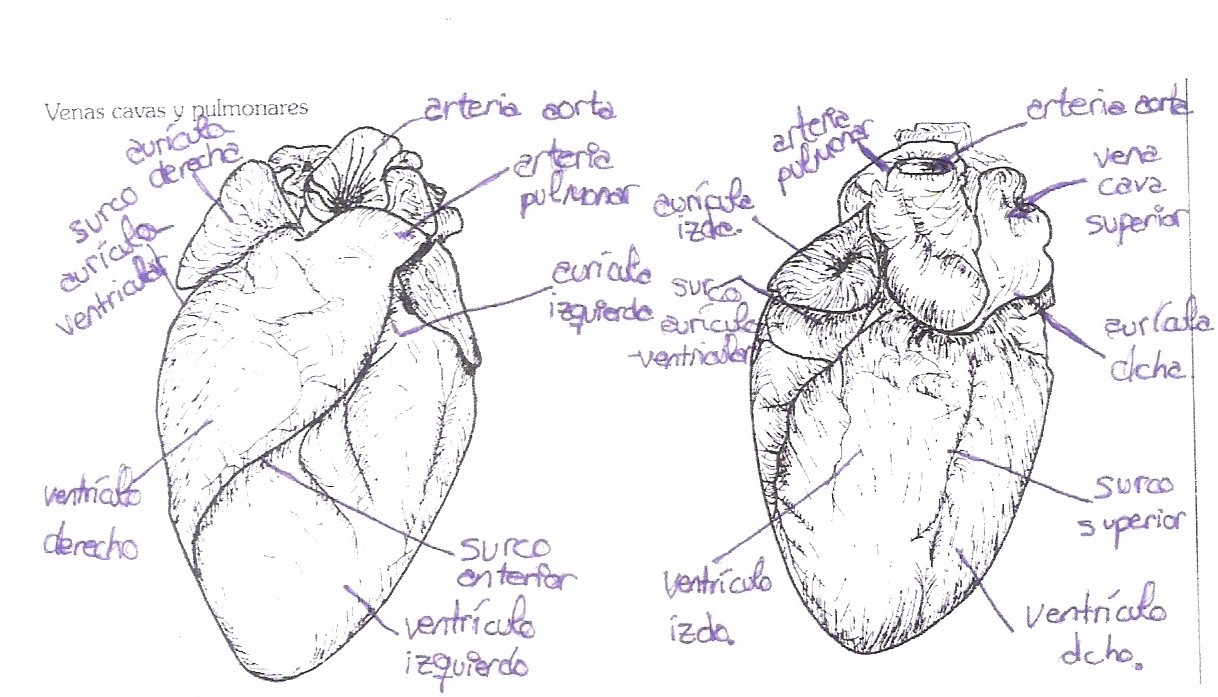 Venas cavas y pulmonares
aurícula
derecha
surco
aurículo-
ventricular
arteria aorta
arteria
pulmonar
aurícula
izquierda
ventrículo
derecho
surco
anterior
ventrículo
izquierdo
arteria
pulmonar
arteria aorta
vena
cava
superior
aurícula
izda.
surco
aurículo
-ventricular
aurícula
dcha
surco
superior
ventrículo
izdo.
ventrículo
dcho.